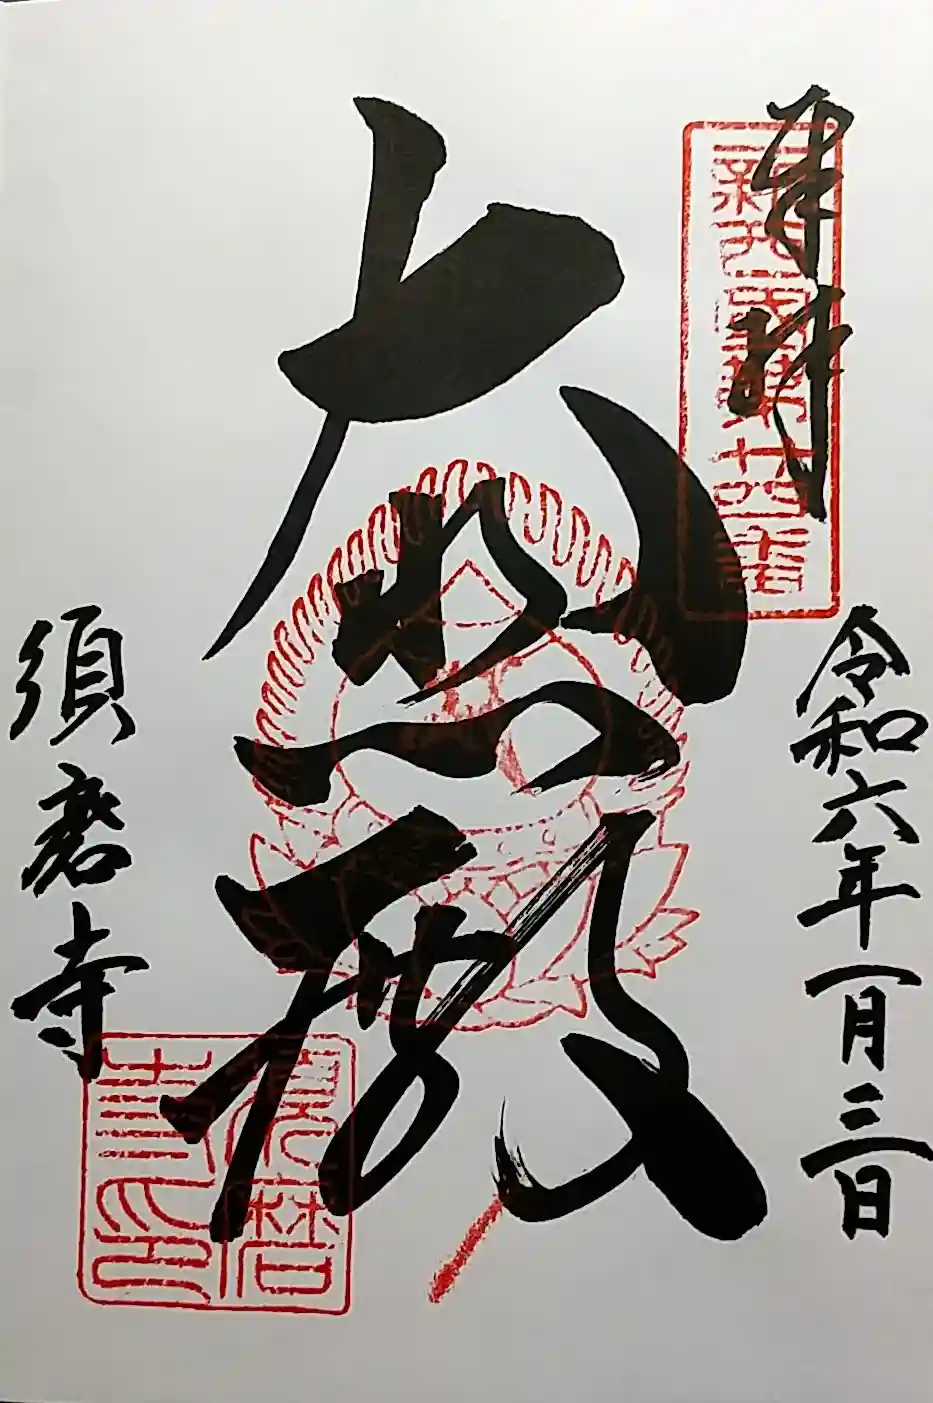 奉拝
新西国第廿四番
令和六年一月三日
大悲殿
須磨寺
須磨寺印